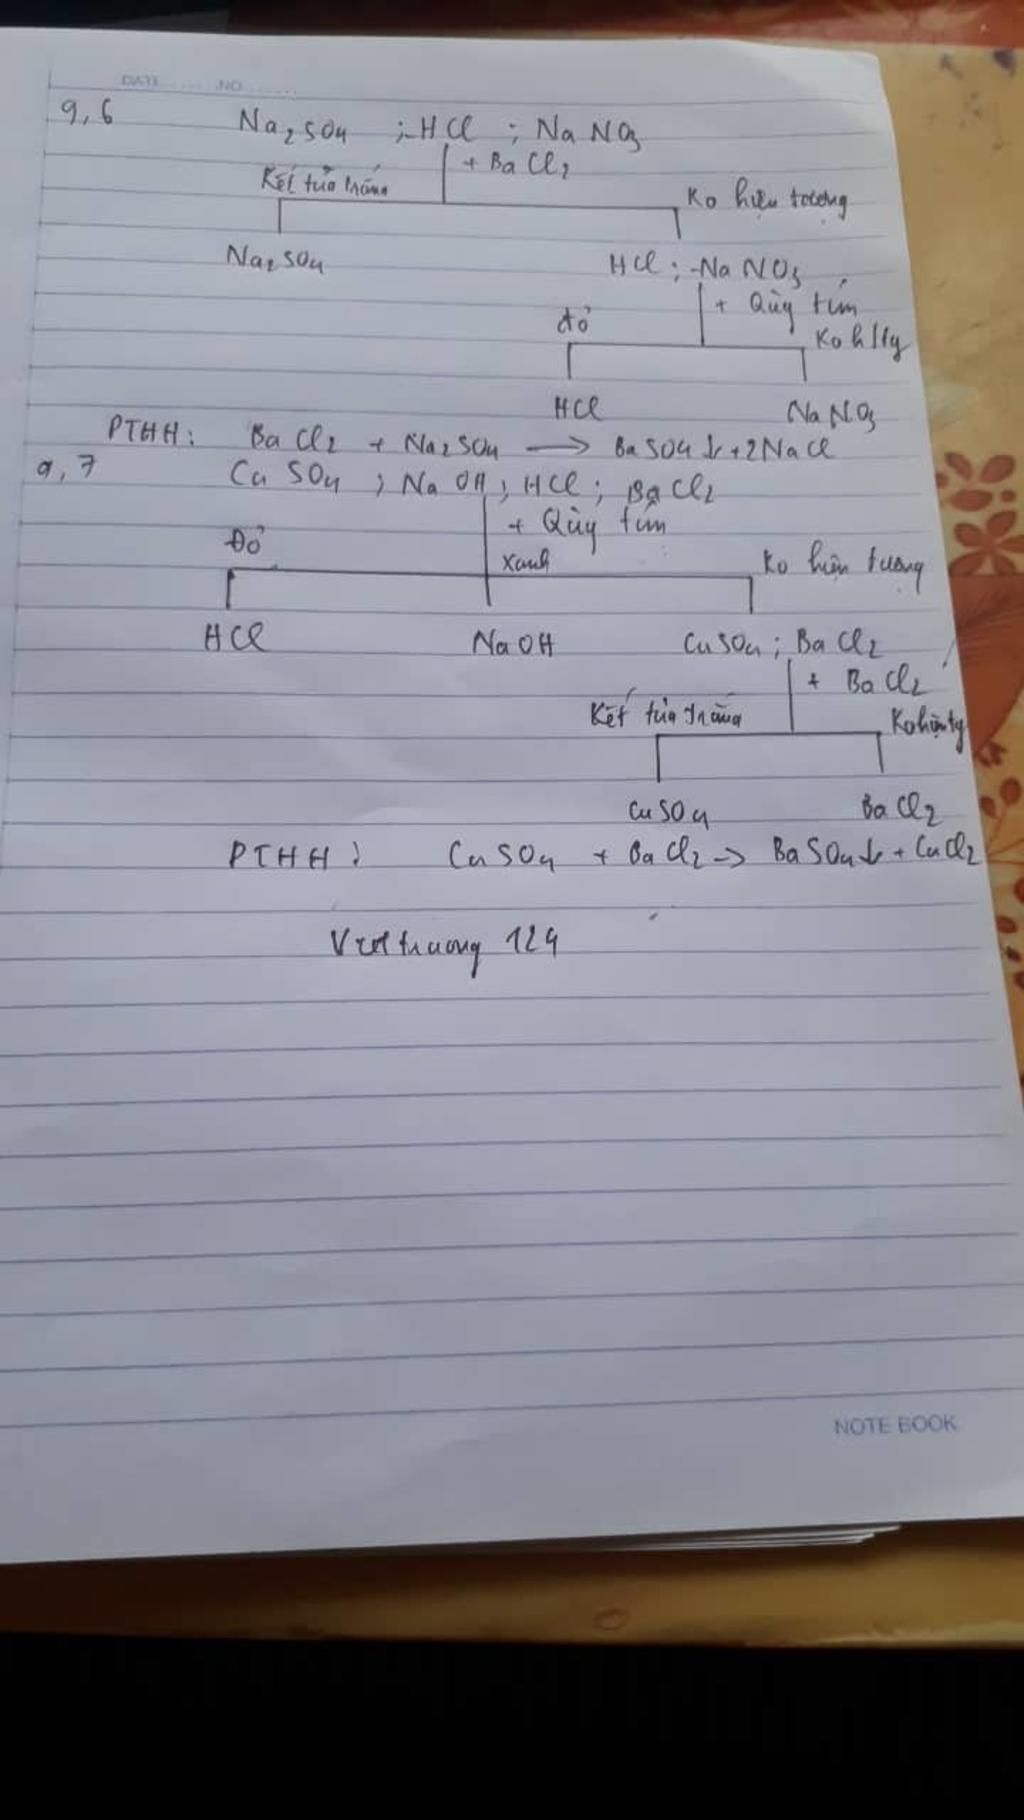 DATE ...... NO .......
9,6 Na2SO4 ; HCl ; NaNO3
+ BaCl2
Kết tủa trắng Ko hiện tượng
Na2SO4 HCl ; NaNO3
+ Qùy tím
đỏ Ko h/tg
HCl NaNO3
PTHH: BaCl2 + Na2SO4 → BaSO4↓ + 2NaCl
9,7 CuSO4 ; NaOH ; HCl ; BaCl2
+ Qùy tím
Đỏ xanh Ko hiện tượng
HCl NaOH CuSO4 ; BaCl2
+ BaCl2
Kết tủa trắng Ko hiện tg
CuSO4 BaCl2
PTHH: CuSO4 + BaCl2 → BaSO4↓ + CuCl2
124
NOTE BOOK